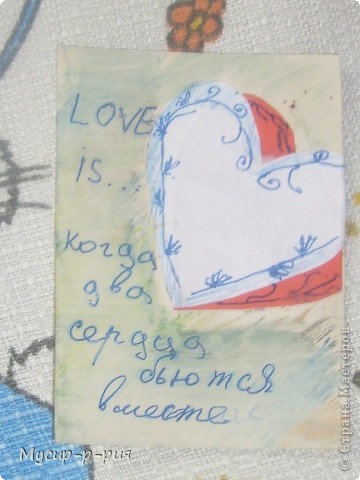 LOVE
is...
когда
два
сердца
бьются
вместе
Мусир-р-рия
© Страна Мастеров